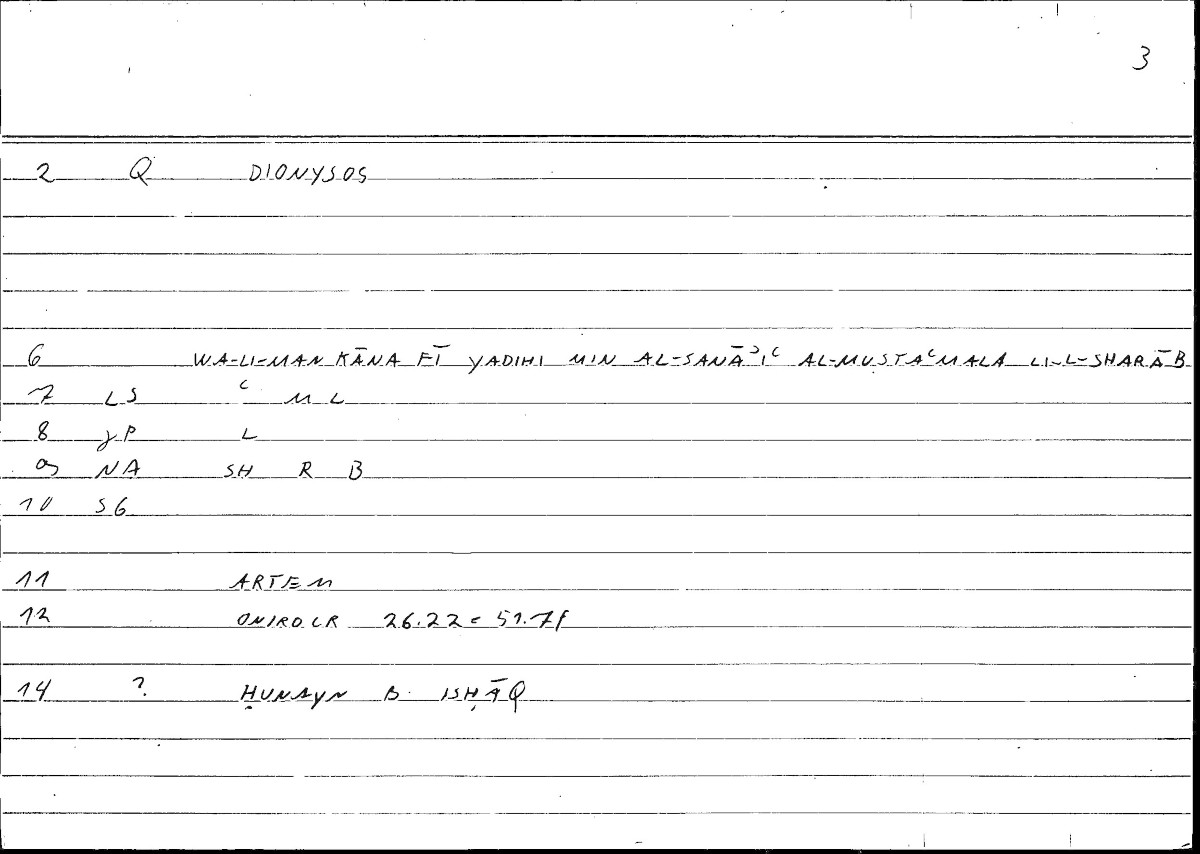 3
2 Q DIONYSOS
6 WA-LI-MAN KĀNA FĪ YADIHI MIN AL-SANĀʾIʿ AL-MUSTAʿMALA LI-L-SHARĀB
7 LS ʿ M L
8 γP L
9 NA SH R B
10 SG
11 ARTEM
12 ONIROCR 26.22 = 51.7f
14 ? ḤUNAYN B. ISḤĀQ